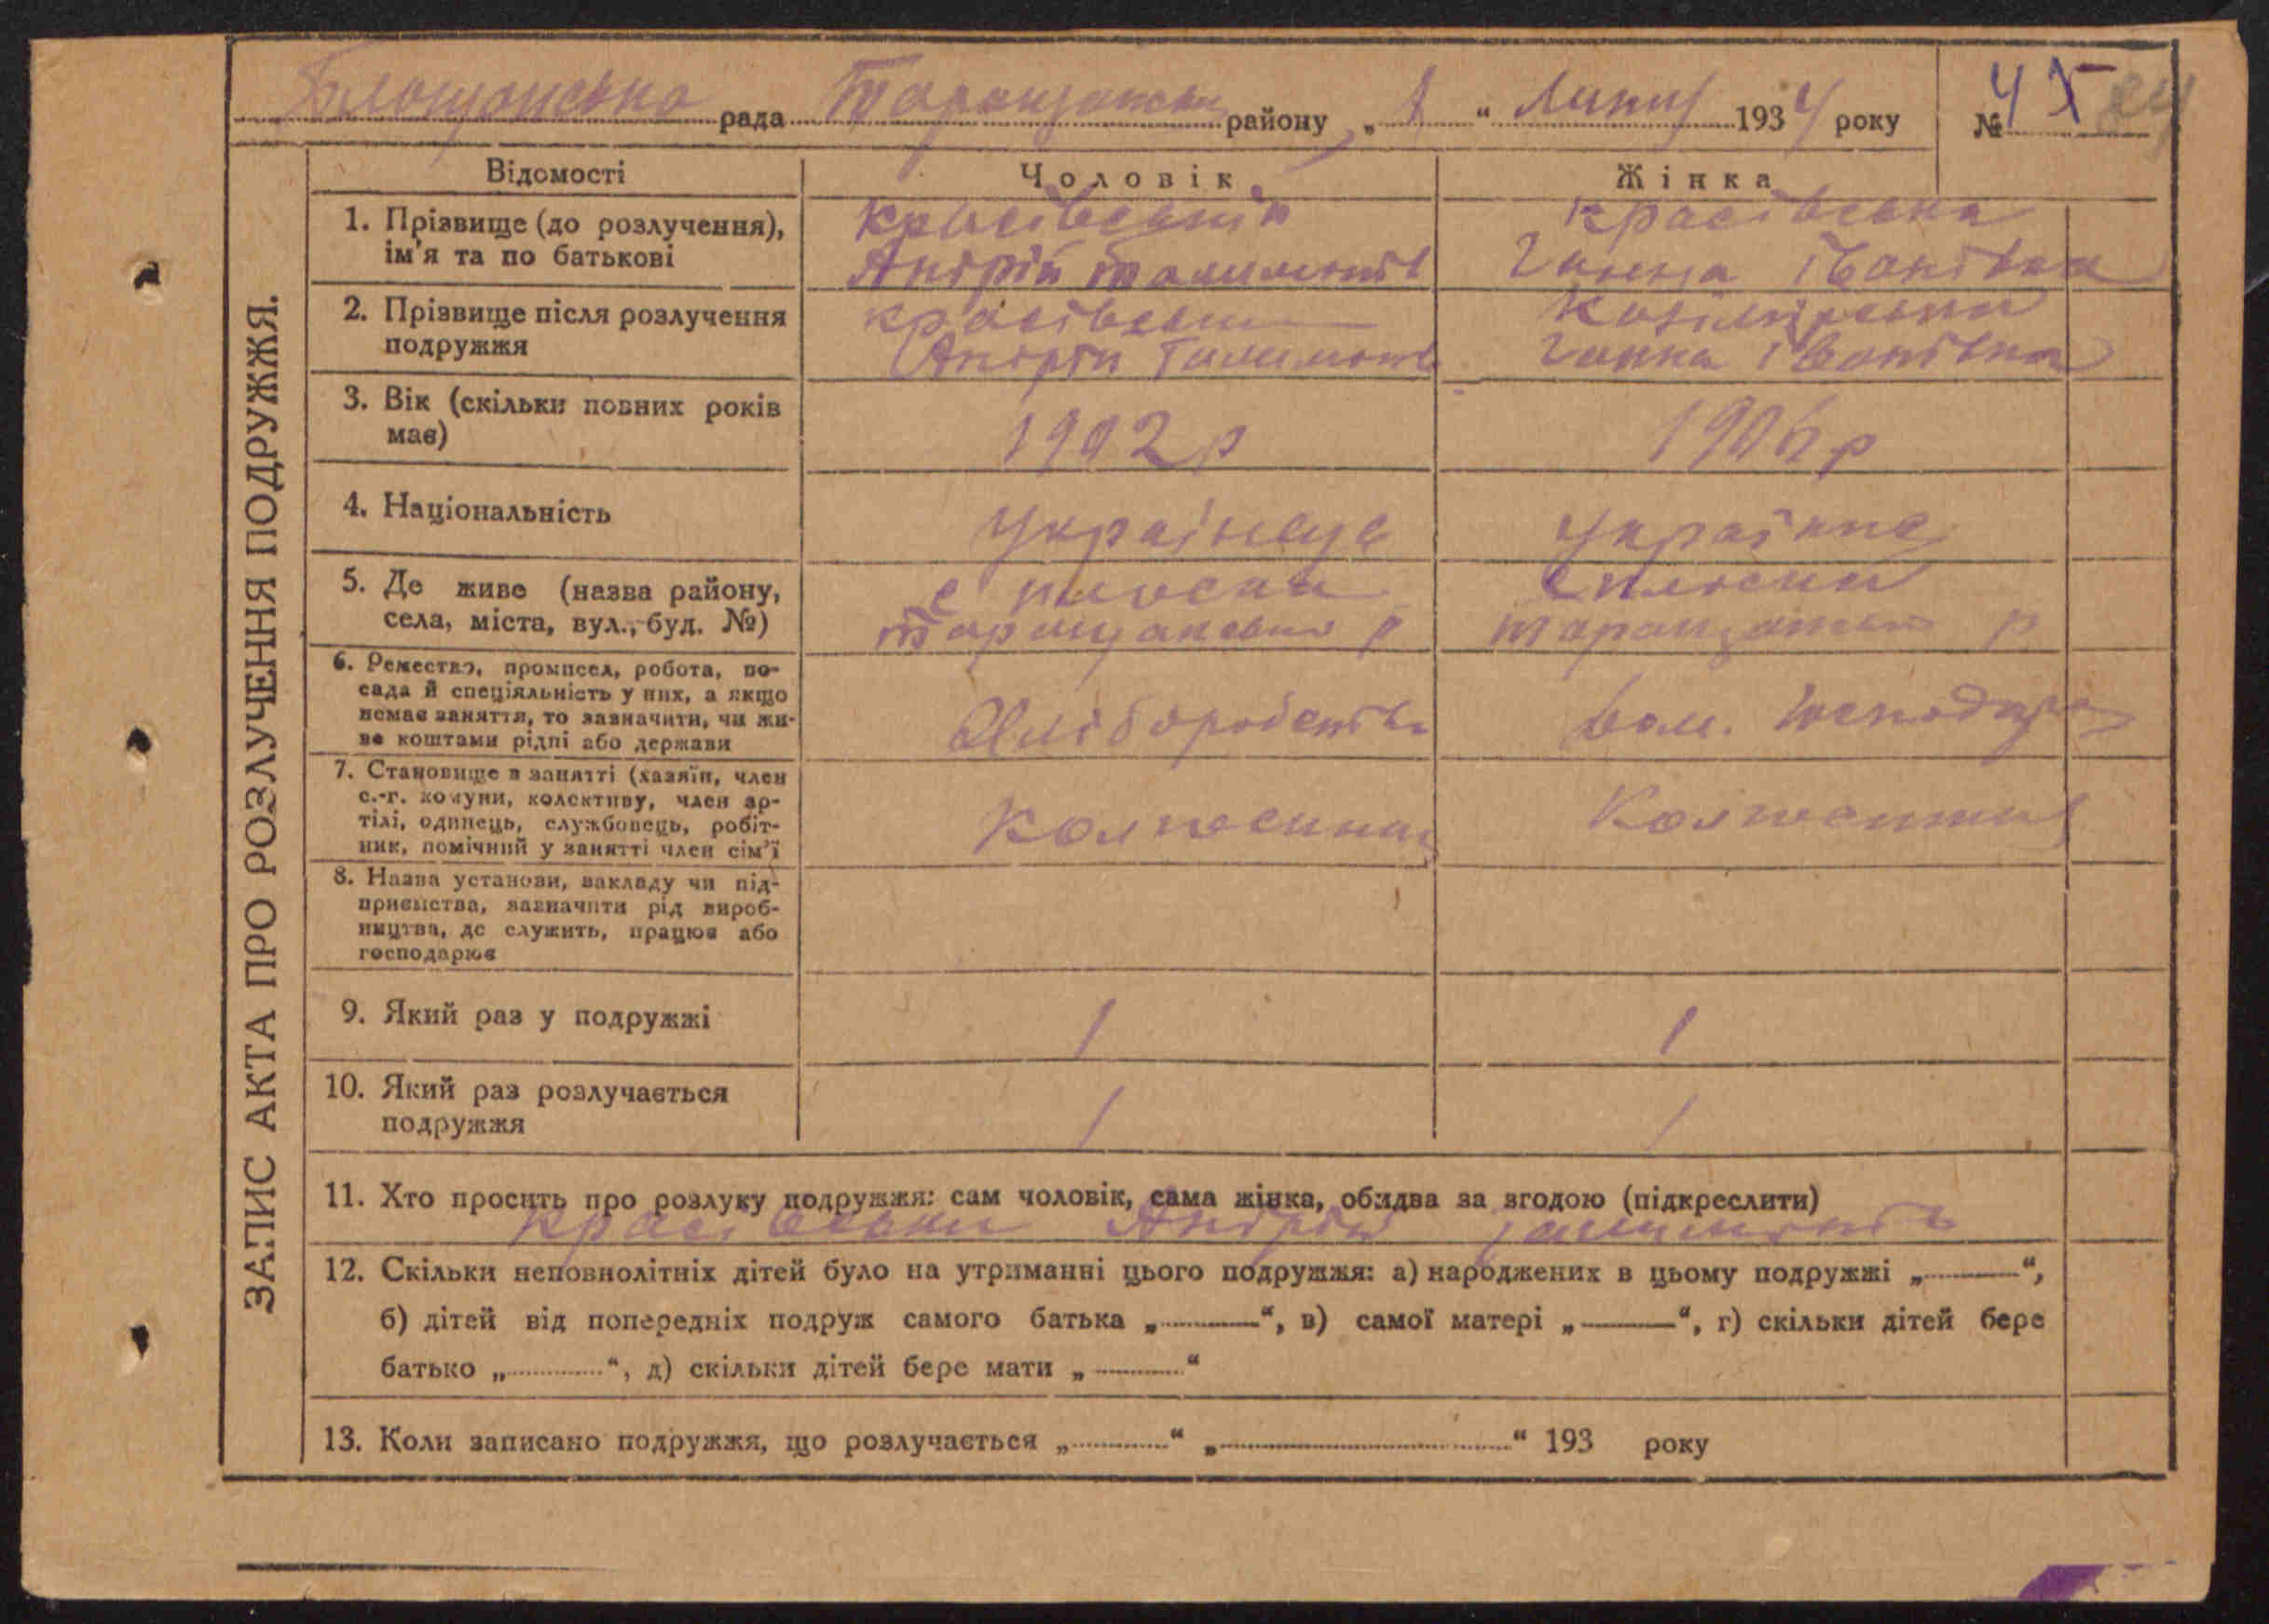 рада Таращанськ району „ 1 “ Липня 1934 року № 4
ЗАПИС АКТА ПРО РОЗЛУЧЕННЯ ПОДРУЖЖЯ.
Відомості Чоловік Жінка
1. Прізвище (до розлучення), ім'я та по батькові
Красівський
Андрій
Красівська
Ганна Іванівна
2. Прізвище після розлучення подружжя
Красівськи
Андрій
Ганна Іванівна
3. Вік (скільки повних років має)
1902 р
1906 р
4. Національність
українець
українка
5. Де живе (назва району, села, міста, вул., буд. №)
с плоска
Таращанського р
с плоска
Таращанського р
6. Ремество, промисел, робота, по-
сада й спеціяльність у них, а якщо
немає заняття, то зазначити, чи жи-
ве коштами рідні або держави
Хліборобств
дом. господар
7. Становище в занятті (хазяїн, член
с.-г. комуни, колективу, член ар-
тілі, одинець, службовець, робіт-
ник, помічний у занятті член сім'ї
Колгоспник
Колгоспниця
8. Назва установи, закладу чи під-
приємства, зазначити рід вироб-
ництва, де служить, працює або
господарює
9. Який раз у подружжі
1
1
10. Який раз розлучається
подружжя
1
1
11. Хто просить про розлуку подружжя: сам чоловік, сама жінка, обидва за згодою (підкреслити)
Красівськи Андрій
12. Скільки неповнолітніх дітей було на утриманні цього подружжя: а) народжених в цьому подружжі „ “,
б) дітей від попередніх подруж самого батька „ “, в) самої матері „ “, г) скільки дітей бере
батько „ “, д) скільки дітей бере мати „ “
13. Коли записано подружжя, що розлучається „ “ „ “ 193 року